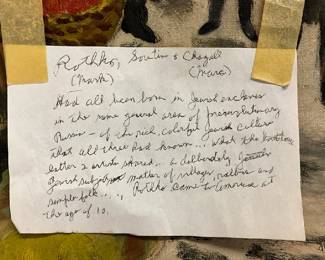 Rothko, Soutine & Chagall
(Mark) (Marc)
Had all been born in Jewish enclaves
in the same general area of Prerevolutionary
Russia - of the rich, colorful Jewish culture
that all three had known... what the
latter 2 artists shared.. a deliberately
Jewish subject matter of villages, rabbis - and
simple folk.... Rothko came to America at
the age of 10.